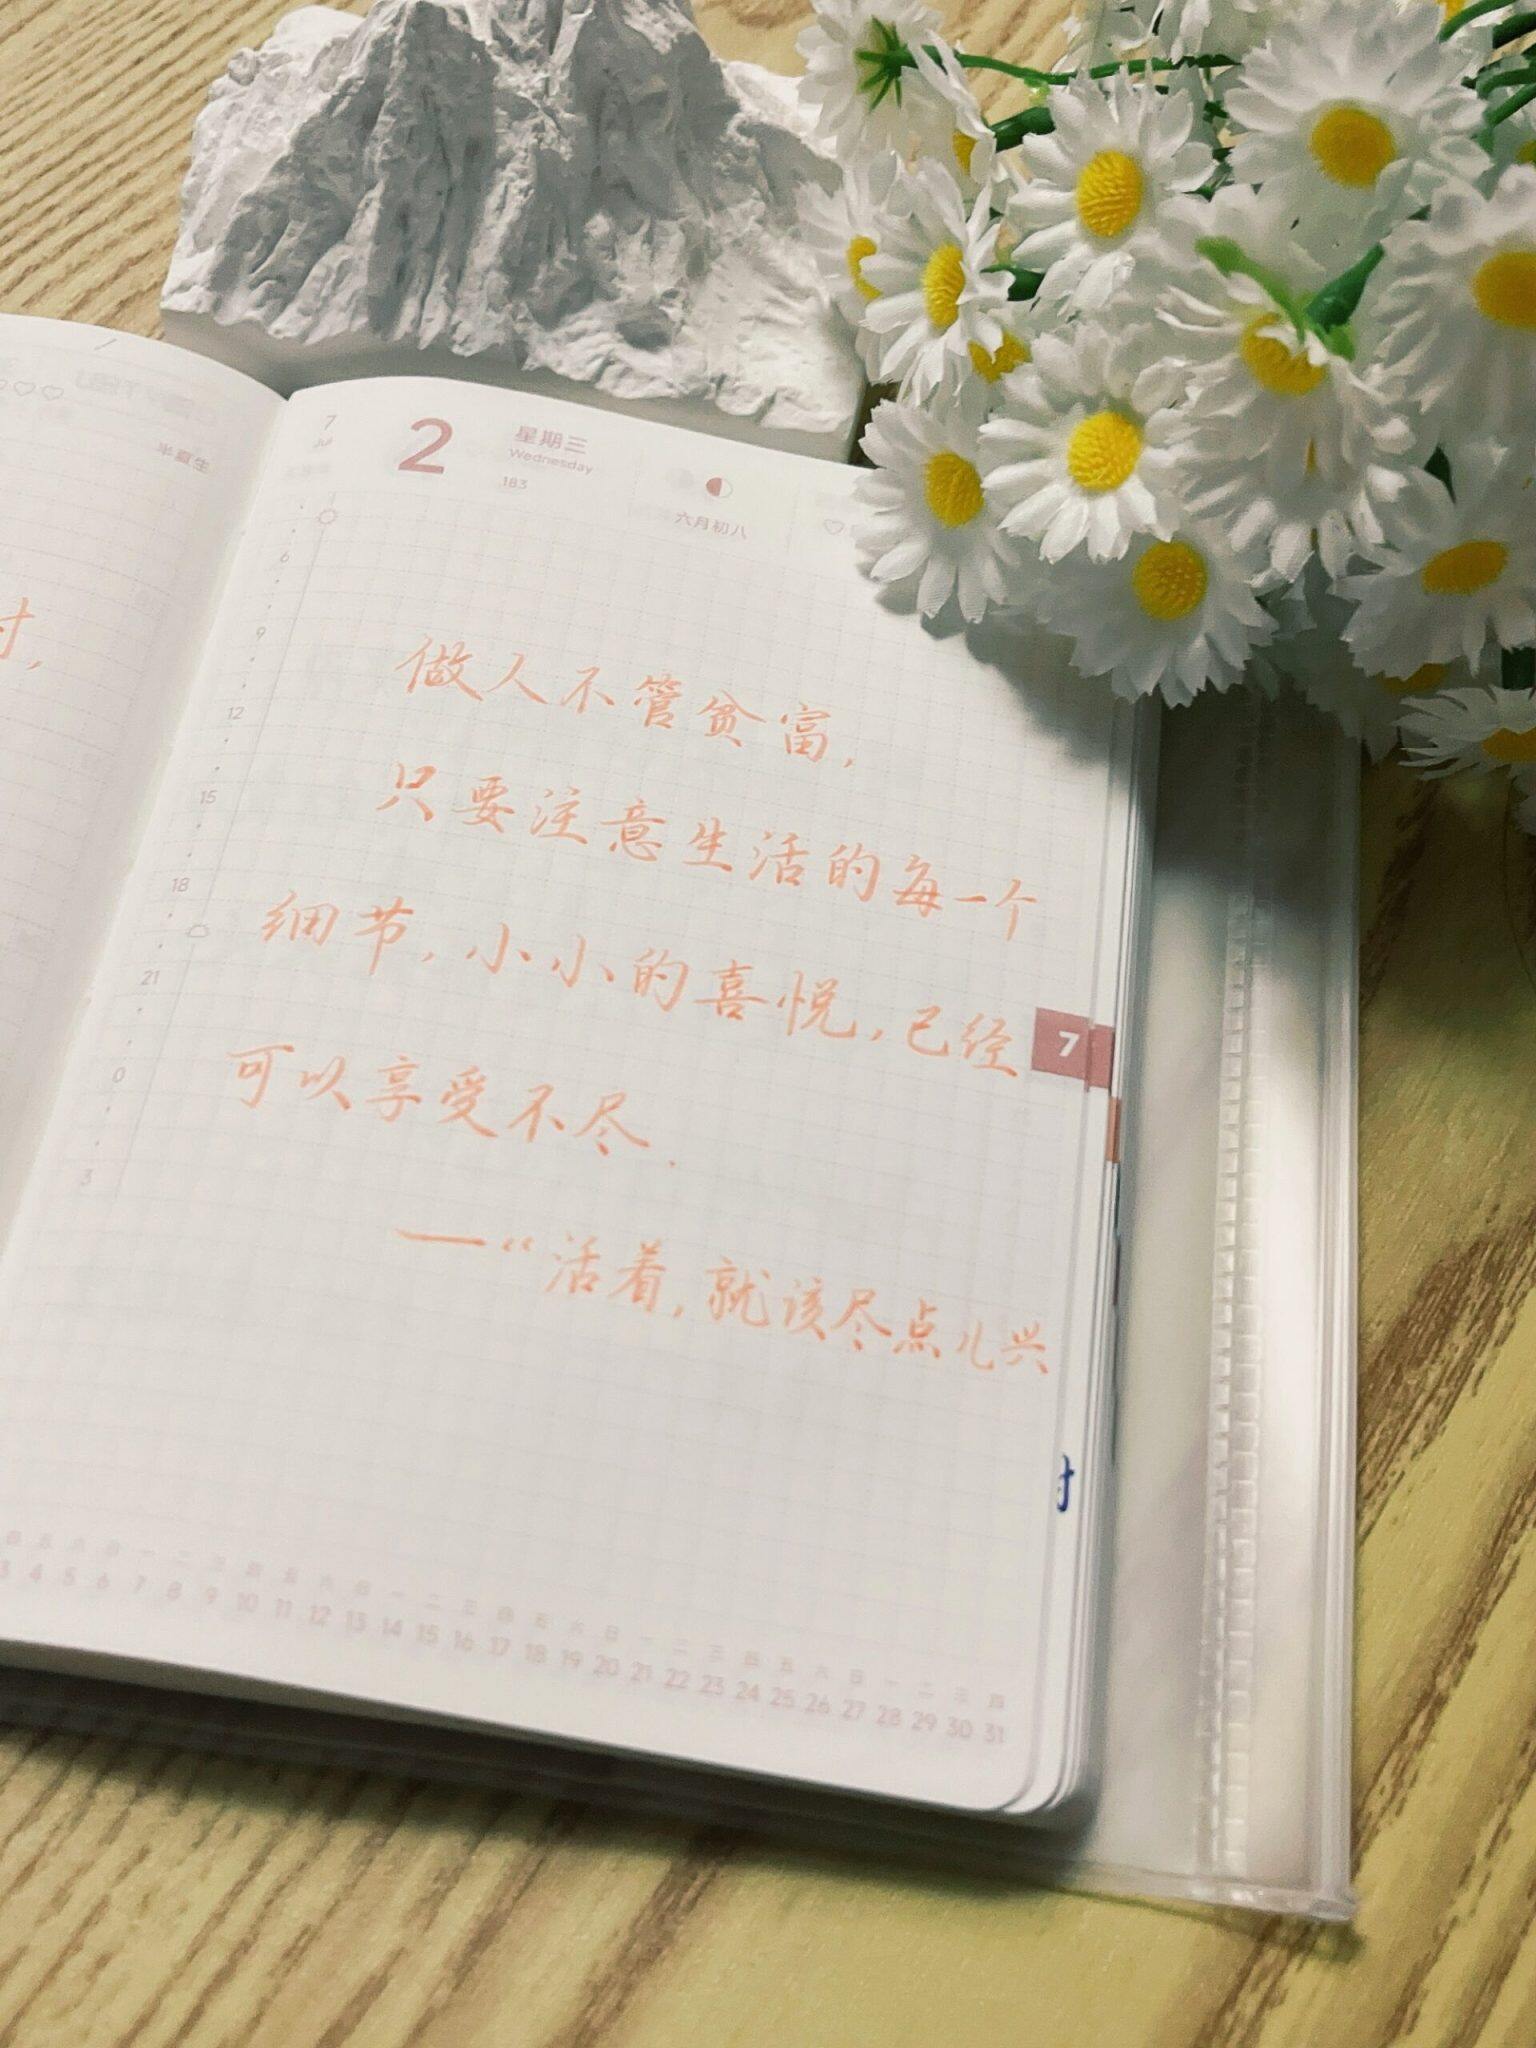 半夏生
寸,
7
Jul
2
星期三
Wednesday
183
六月初八
6
9
12
15
18
21
0
3
做人不管贫富,
只要注意生活的每一个
细节,小小的喜悦,已经
可以享受不尽.
——“活着,就该尽点儿兴
7
四 五 六 日 一 二 三 四 五 六 日 一 二 三 四 五 六 日 一 二 三 四 五 六 日 一 二 三 四
3 4 5 6 7 8 9 10 11 12 13 14 15 16 17 18 19 20 21 22 23 24 25 26 27 28 29 30 31